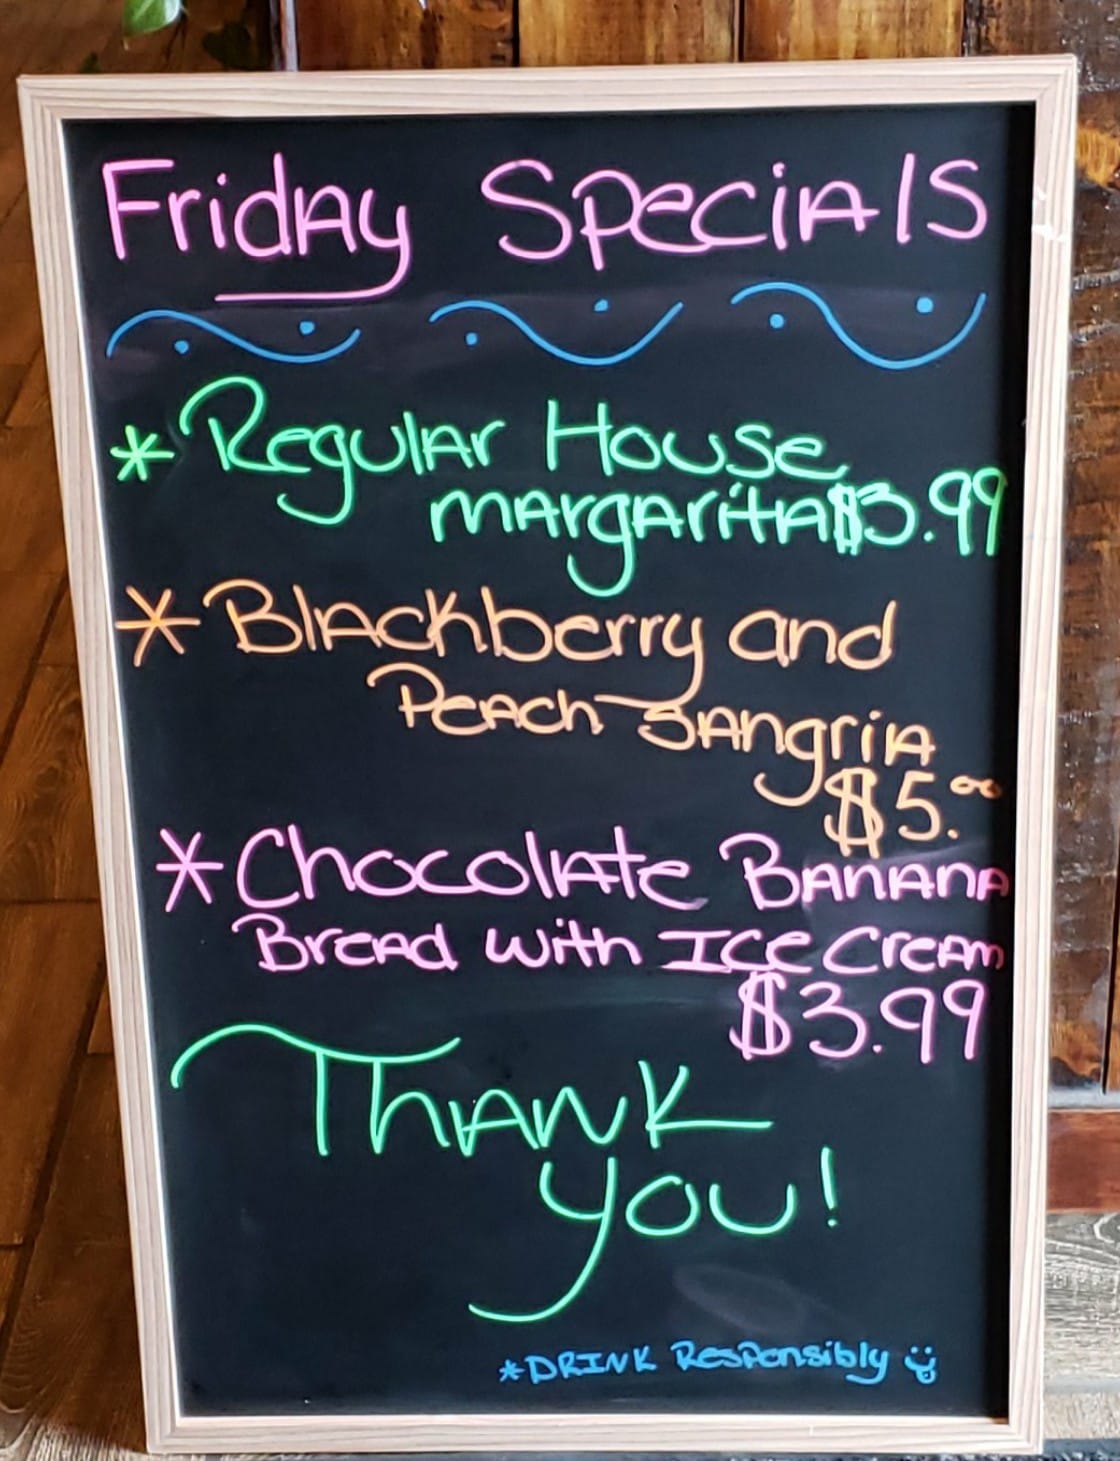 Friday Specials
* Regular House
margarita $3.99
* Blackberry and
Peach Sangria
$5.00
* Chocolate Banana
Bread with Ice Cream
$3.99
Thank
you!
*DRINK Responsibly